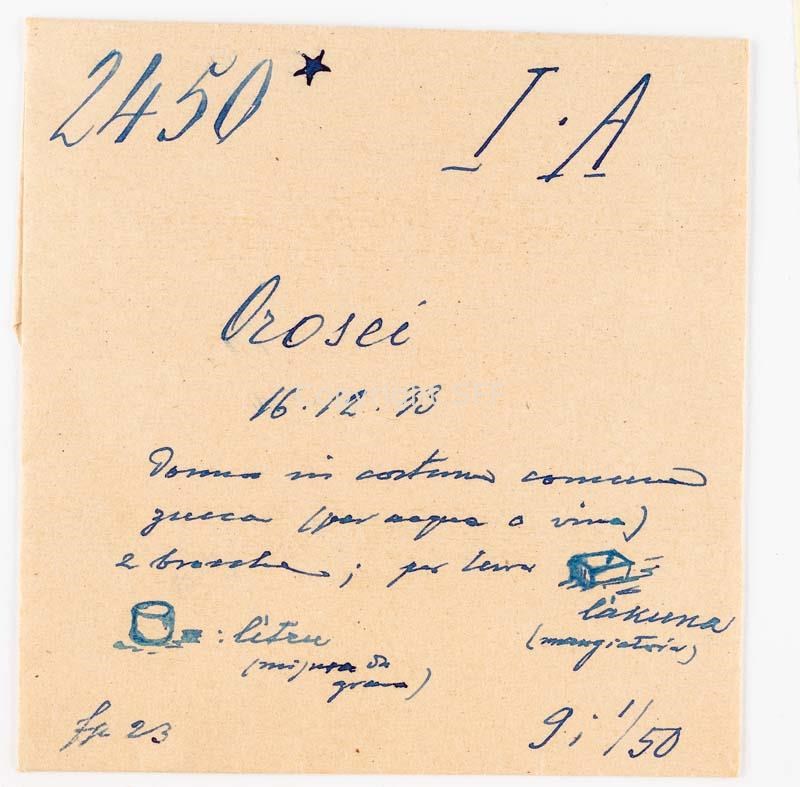 2450* I.A
Orosei
16.12.33
Donna in costume comune
zucca (per acqua o vino)
e brocche; per terra
làkuna
(mangiatoia)
: lìtru
(misura da
grano)
fp 23
9; 1/50